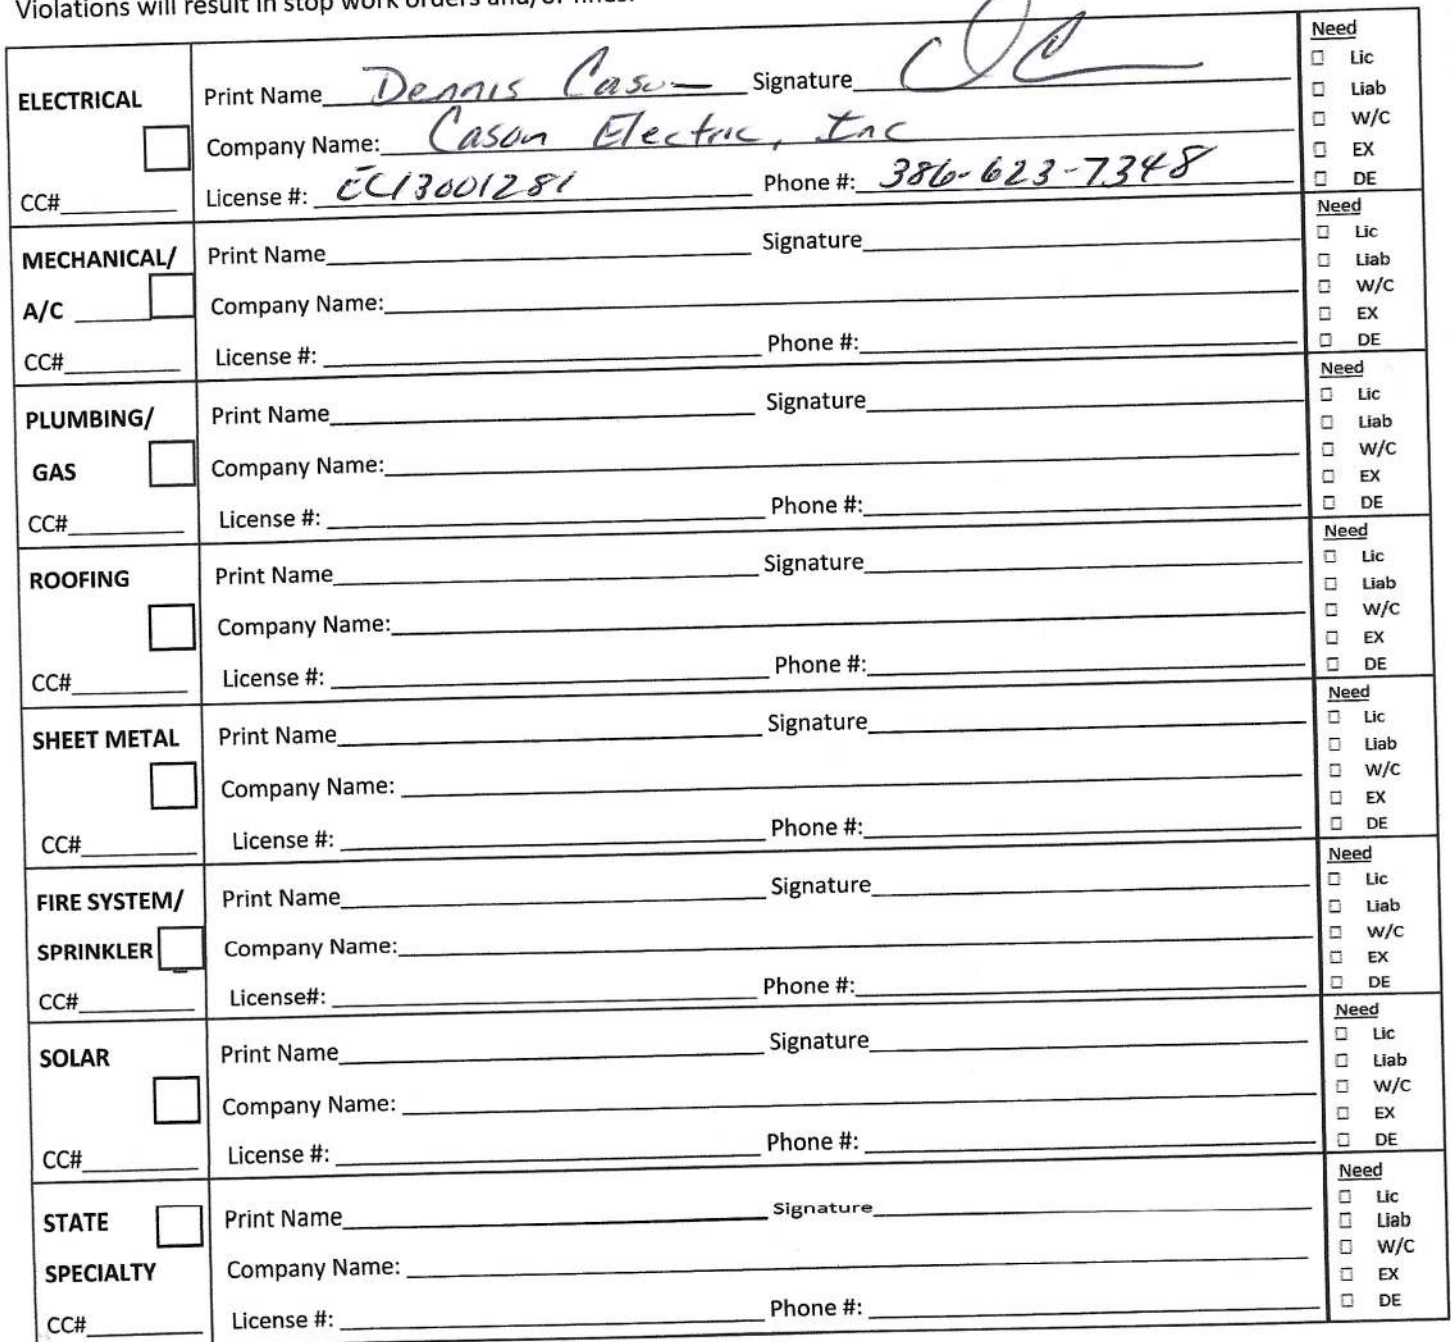 Violations will result in stop work orders and/or fines.
ELECTRICAL
CC#
Print Name Dennis Cason Signature
Company Name: Cason Electric, Inc
License #: EC13001281 Phone #: 386-623-7348
Need
Lic
Liab
W/C
EX
DE
MECHANICAL/
A/C
CC#
Print Name Signature
Company Name:
License #: Phone #:
Need
Lic
Liab
W/C
EX
DE
PLUMBING/
GAS
CC#
Print Name Signature
Company Name:
License #: Phone #:
Need
Lic
Liab
W/C
EX
DE
ROOFING
CC#
Print Name Signature
Company Name:
License #: Phone #:
Need
Lic
Liab
W/C
EX
DE
SHEET METAL
CC#
Print Name Signature
Company Name:
License #: Phone #:
Need
Lic
Liab
W/C
EX
DE
FIRE SYSTEM/
SPRINKLER
CC#
Print Name Signature
Company Name:
License#: Phone #:
Need
Lic
Liab
W/C
EX
DE
SOLAR
CC#
Print Name Signature
Company Name:
License #: Phone #:
Need
Lic
Liab
W/C
EX
DE
STATE
SPECIALTY
CC#
Print Name Signature
Company Name:
License #: Phone #:
Need
Lic
Liab
W/C
EX
DE